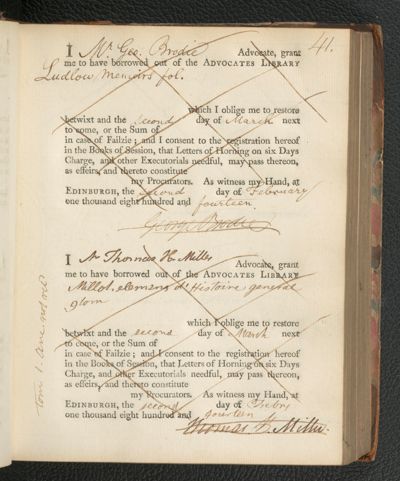 41.
I Mr. Geo. Brodie Advocate, grant
me to have borrowed out of the ADVOCATES LIBRARY
Ludlow, memoirs fol.
which I oblige me to restore
betwixt and the second day of March next
to come, or the Sum of
in case of Failzie; and I consent to the registration hereof
in the Books of Session, that Letters of Horning on six Days
Charge, and other Executorials needful, may pass thereon,
as effeirs, and thereto constitute
my Procurators. As witness my Hand, at
EDINBURGH, the second day of February
one thousand eight hundred and fourteen.
George Brodie
I Mr Thomas H. Miller Advocate, grant
me to have borrowed out of the ADVOCATES LIBRARY
Millot, elemens d'Histoire general
9 tom
which I oblige me to restore
betwixt and the second day of March next
to come, or the Sum of
in case of Failzie; and I consent to the registration hereof
in the Books of Session, that Letters of Horning on six Days
Charge, and other Executorials needful, may pass thereon,
as effeirs, and thereto constitute
my Procurators. As witness my Hand, at
EDINBURGH, the second day of Feby
one thousand eight hundred and fourteen
Thomas H. Miller
tom 1.